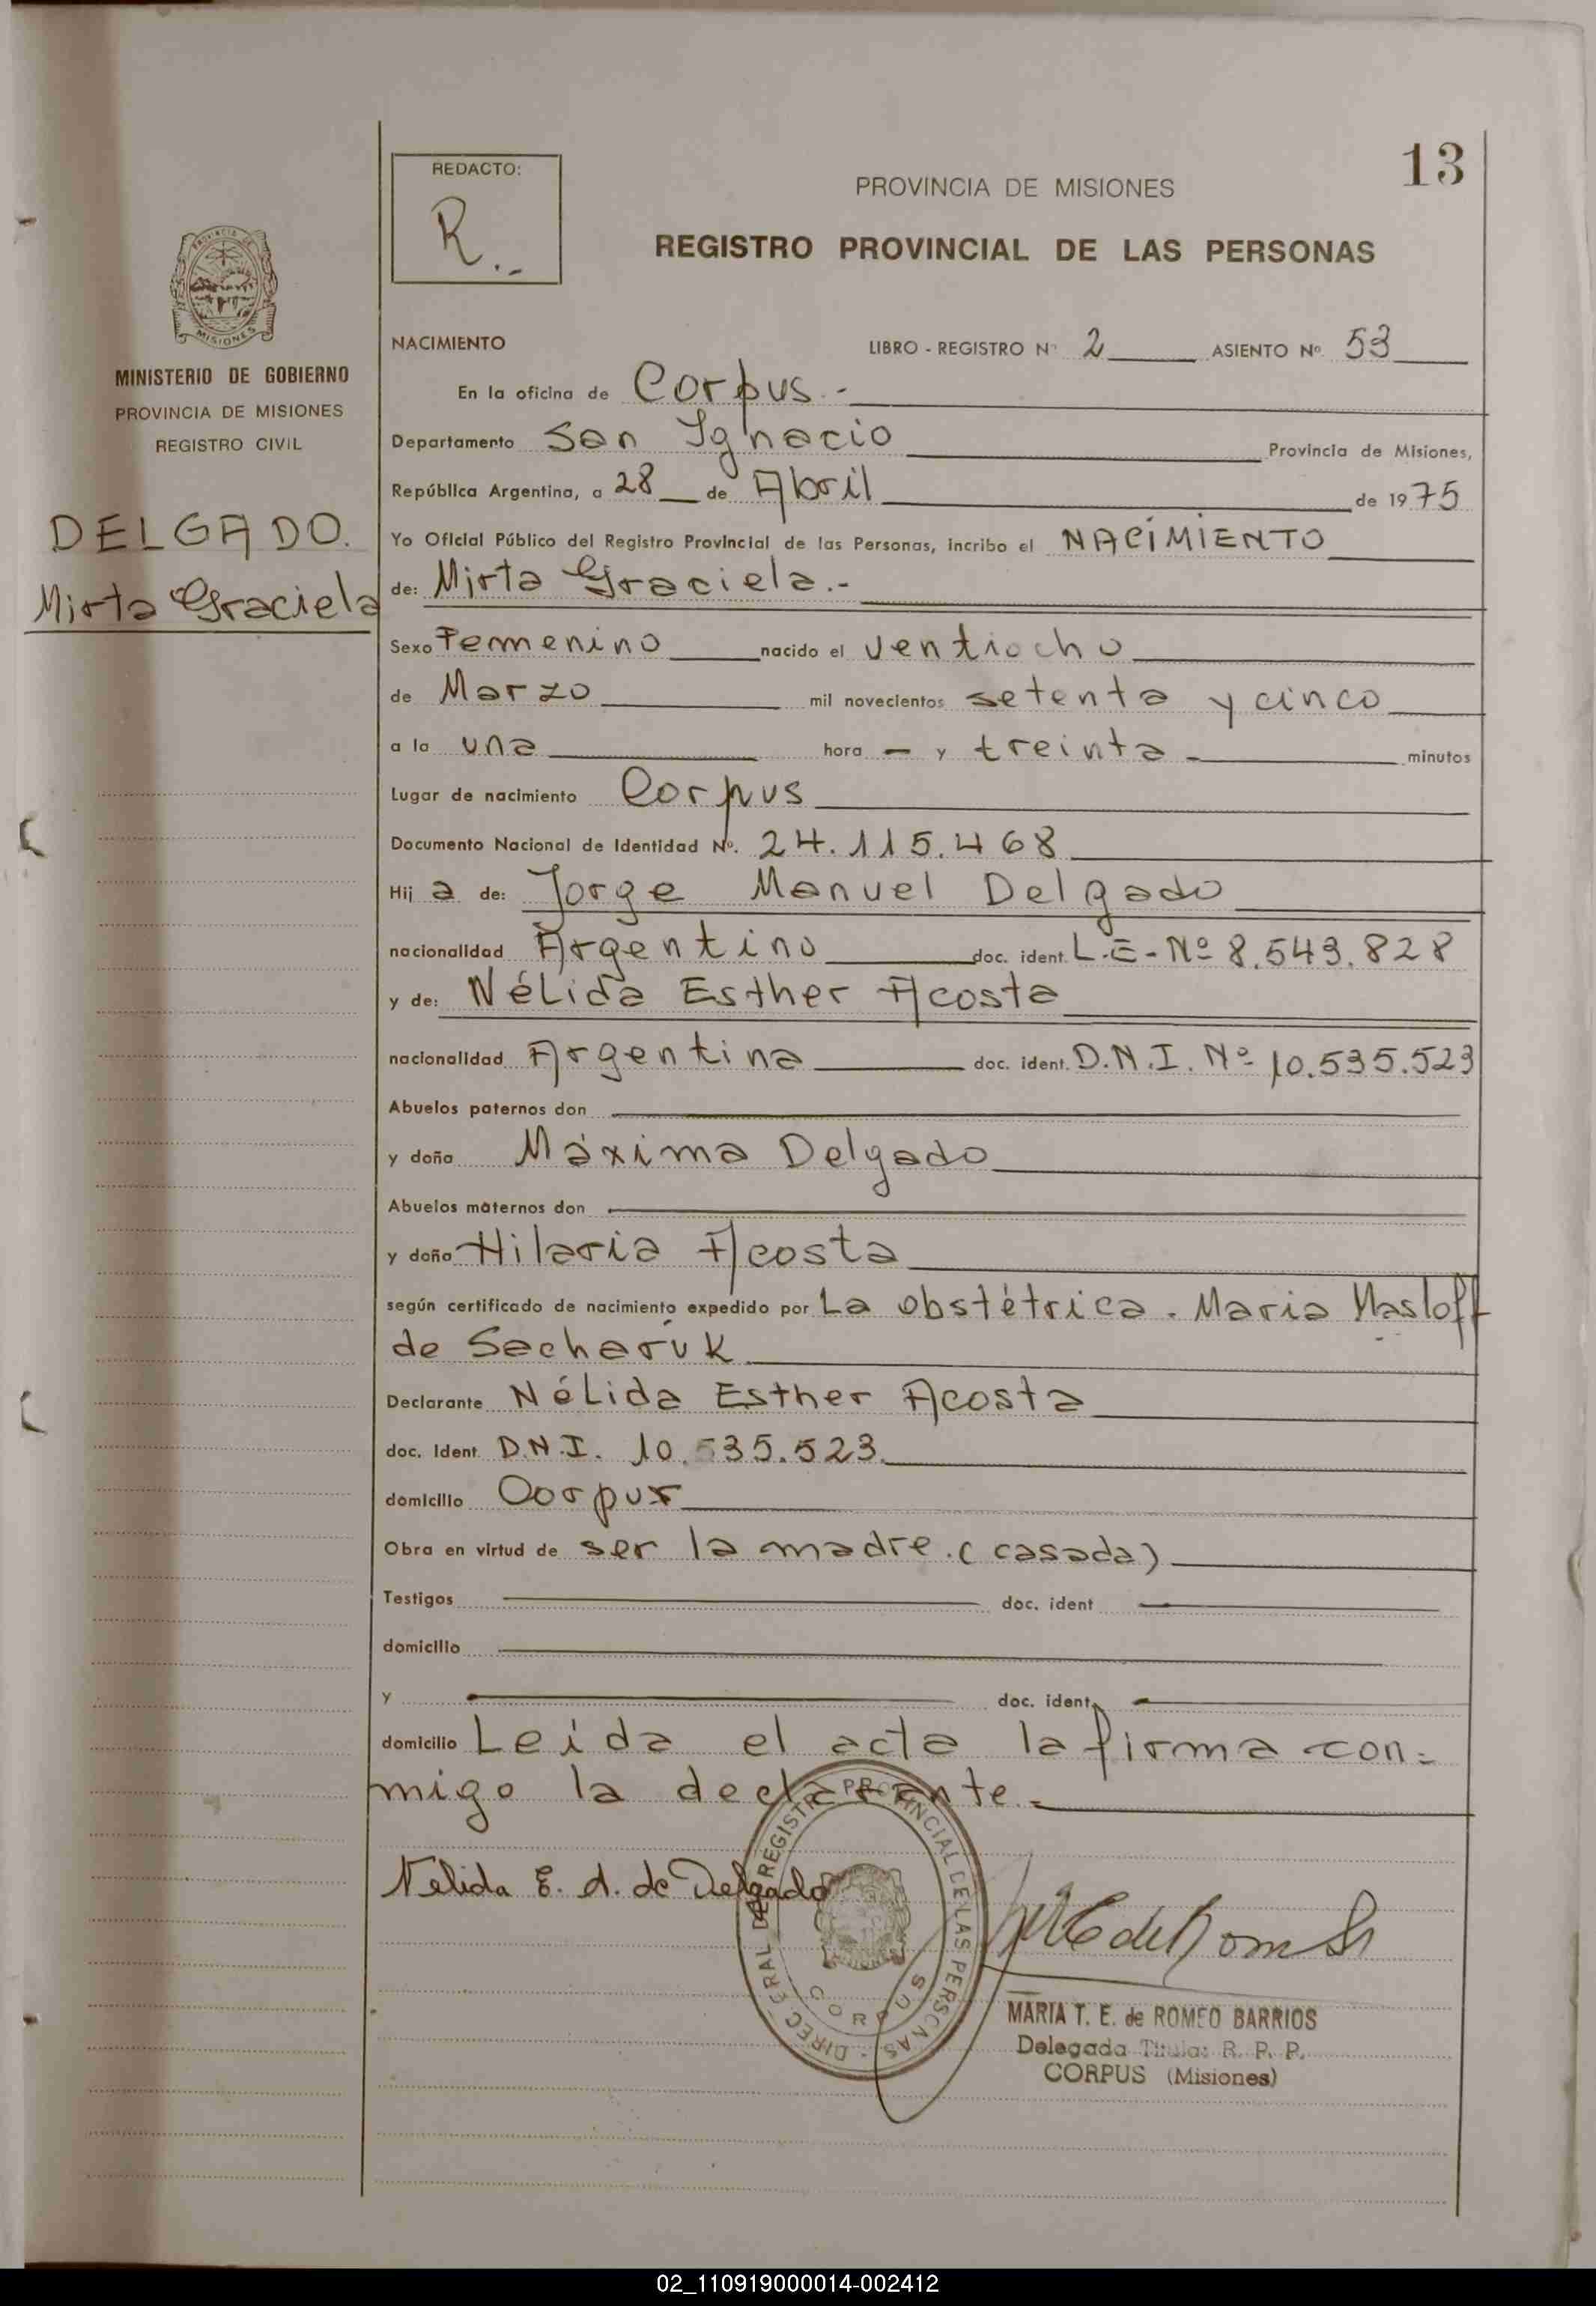 13
REDACTO:
R.-
PROVINCIA DE MISIONES
REGISTRO PROVINCIAL DE LAS PERSONAS
PROVINCIA DE
MISIONES
MINISTERIO DE GOBIERNO
PROVINCIA DE MISIONES
REGISTRO CIVIL
DELGADO.
Mirta Graciela
NACIMIENTO LIBRO - REGISTRO Nº 2 ASIENTO Nº 53
En la oficina de Corpus.-
Departamento San Ignacio Provincia de Misiones,
República Argentina, a 28 de Abril de 1975
Yo Oficial Público del Registro Provincial de las Personas, incribo el NACIMIENTO
de: Mirta Graciela.-
Sexo Femenino nacido el ventiocho
de Marzo mil novecientos setenta y cinco
a la una hora - y treinta - minutos
Lugar de nacimiento Corpus
Documento Nacional de Identidad Nº. 24.115.468
Hij a de: Jorge Manuel Delgado
nacionalidad Argentino doc. ident. L.E-Nº 8.543.828
y de: Nélida Esther Acosta
nacionalidad Argentina doc. ident. D.N.I. Nº 10.535.523
Abuelos paternos don
y doña Máxima Delgado
Abuelos maternos don
y doña Hilaria Acosta
según certificado de nacimiento expedido por La obstétrica. Maria Masloff
de Sacharuk
Declarante Nélida Esther Acosta
doc. Ident. D.N.I. 10.535.523.
domicilio Corpus
Obra en virtud de ser la madre. (casada)
Testigos doc. ident
domicilio
y doc. ident.
domicilio Leida el acta la firma con=
migo la declarante.-
Nelida E. A. de Delgado
DIREC. GRAL DE REGISTRO PROVINCIAL DE LAS PERSONAS
CORPUS
MARIA T. E. de ROMEO BARRIOS
Delegada Titular R. P. P.
CORPUS (Misiones)
02_110919000014-002412